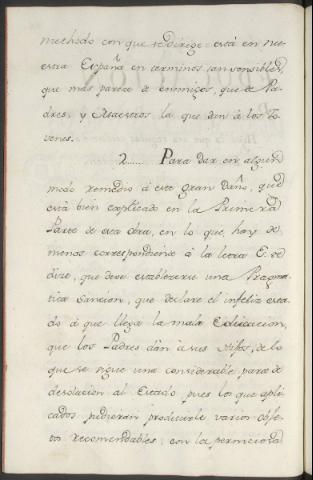 methodo con que se dirige està en nue-
stra España en terminos tan sensibles,
que mas parece de enemigos, que de Pa-
dres, y Maestros la que dan à los Jo-
venes.
2...... Para dar en algun
modo remedio à este gran daño, que
està bien explicado en la Primera
Parte de esta obra, en lo que hay de
menos correspondiente à la letra E. se
dize, que deve establezerse una Pragma-
tica Sancion, que declare el infeliz esta-
do à que llega la mala Educacion,
que los Padres dàn à sus Hijos, de lo
que se sigue una considerable parte de
desolacion al Estado pues los que apli-
cados pudieran producirle varios obje-
tos recomendables; con la perniciosa